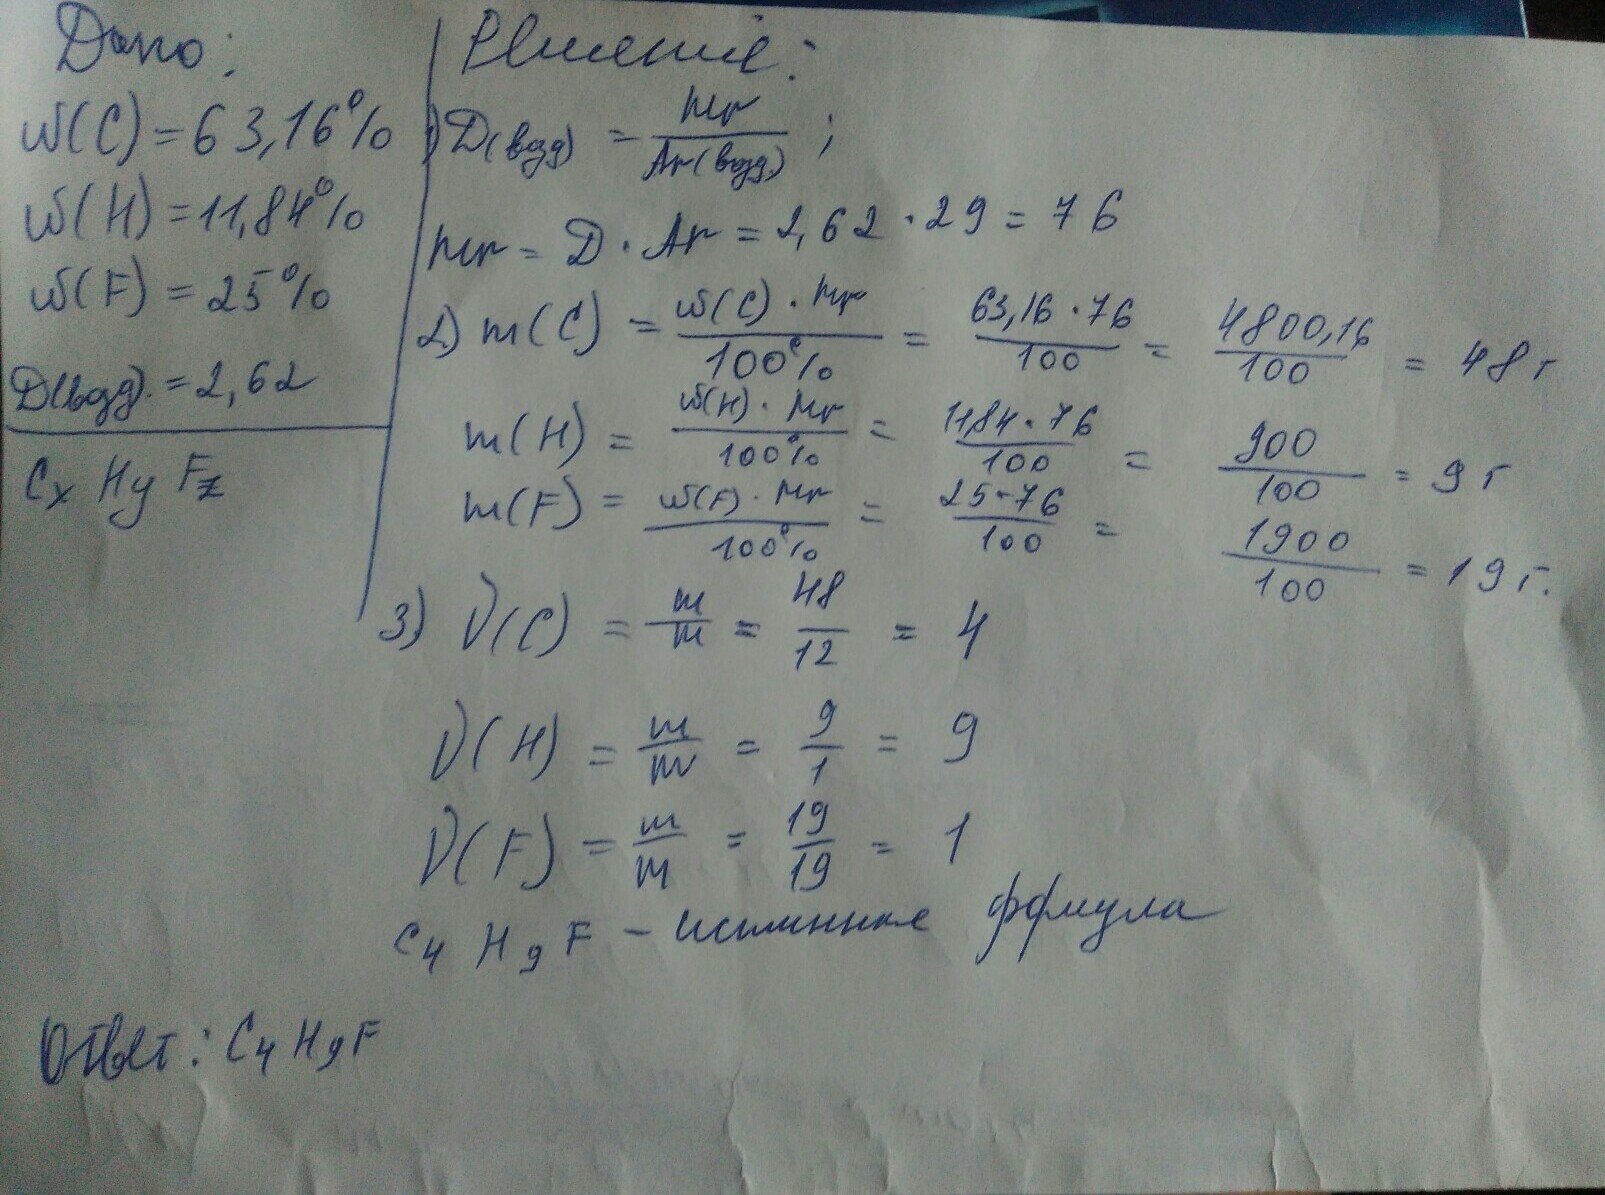 Дано:
ω(C) = 63,16%
ω(H) = 11,84%
ω(F) = 25%
D(возд). = 2,62
Cx Hy Fz
Решение:
1) D(возд) = Mr / Ar(возд) ;
Mr = D · Ar = 2,62 · 29 = 76
2) m(C) = ω(C) · Mr / 100% = 63,16 · 76 / 100 = 4800,16 / 100 = 48 г
m(H) = ω(H) · Mr / 100% = 11,84 · 76 / 100 = 900 / 100 = 9 г
m(F) = ω(F) · Mr / 100% = 25 · 76 / 100 = 1900 / 100 = 19 г.
3) ν(C) = m / M = 48 / 12 = 4
ν(H) = m / M = 9 / 1 = 9
ν(F) = m / M = 19 / 19 = 1
C4 H9 F – истинная формула
Ответ: C4 H9 F